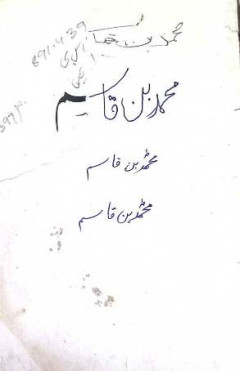 محمد بن
891.439
محمد بن قاسم
محمد بن قاسم
محمد بن قاسم